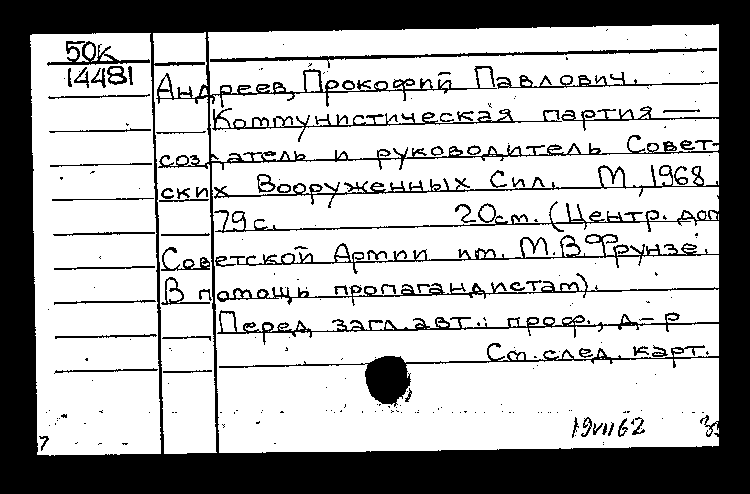 50к
14481
Андреев, Прокофий Павлович.
Коммунистическая партия —
создатель и руководитель Совет-
ских Вооруженных Сил. М., 1968.
79с. 20см. (Центр. дом
Советской Армии им. М.В.Фрунзе.
В помощь пропагандистам).
Перед загл. авт.: проф., д-р
См. след. карт.
19VII62
7